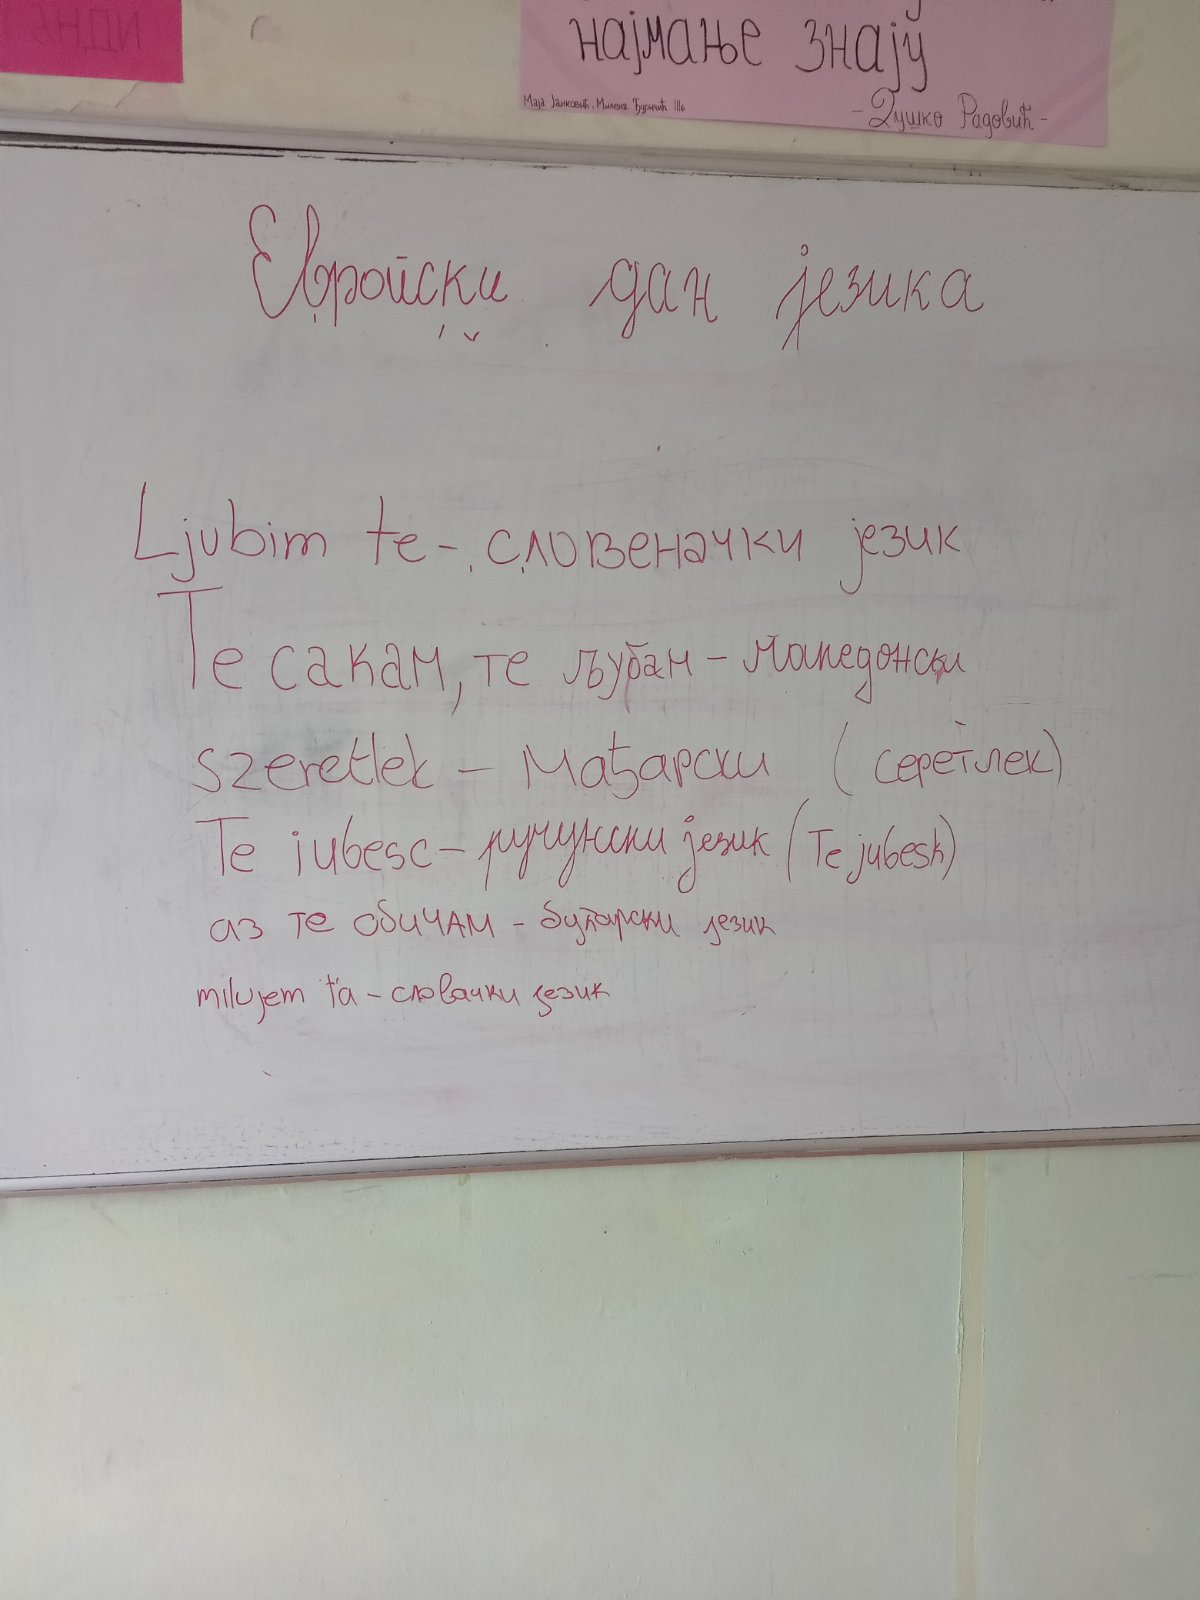 најмање знају
Маја Јанковић, Милена Ђуричић III6
- Душко Радовић -
Европски дан језика
Ljubim te - словеначки језик
Те сакам, те љубам - македонски
szeretlek - Мађарски (серетлек)
Te iubesc - румунски језик (Te jubesh)
аз те обичам - бугарски језик
milujem ťa - словачки језик